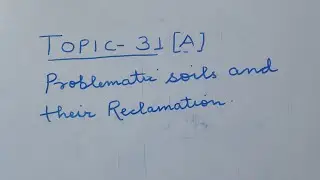 TOPIC- 31 [A]
Problematic soils and
their Reclamation.